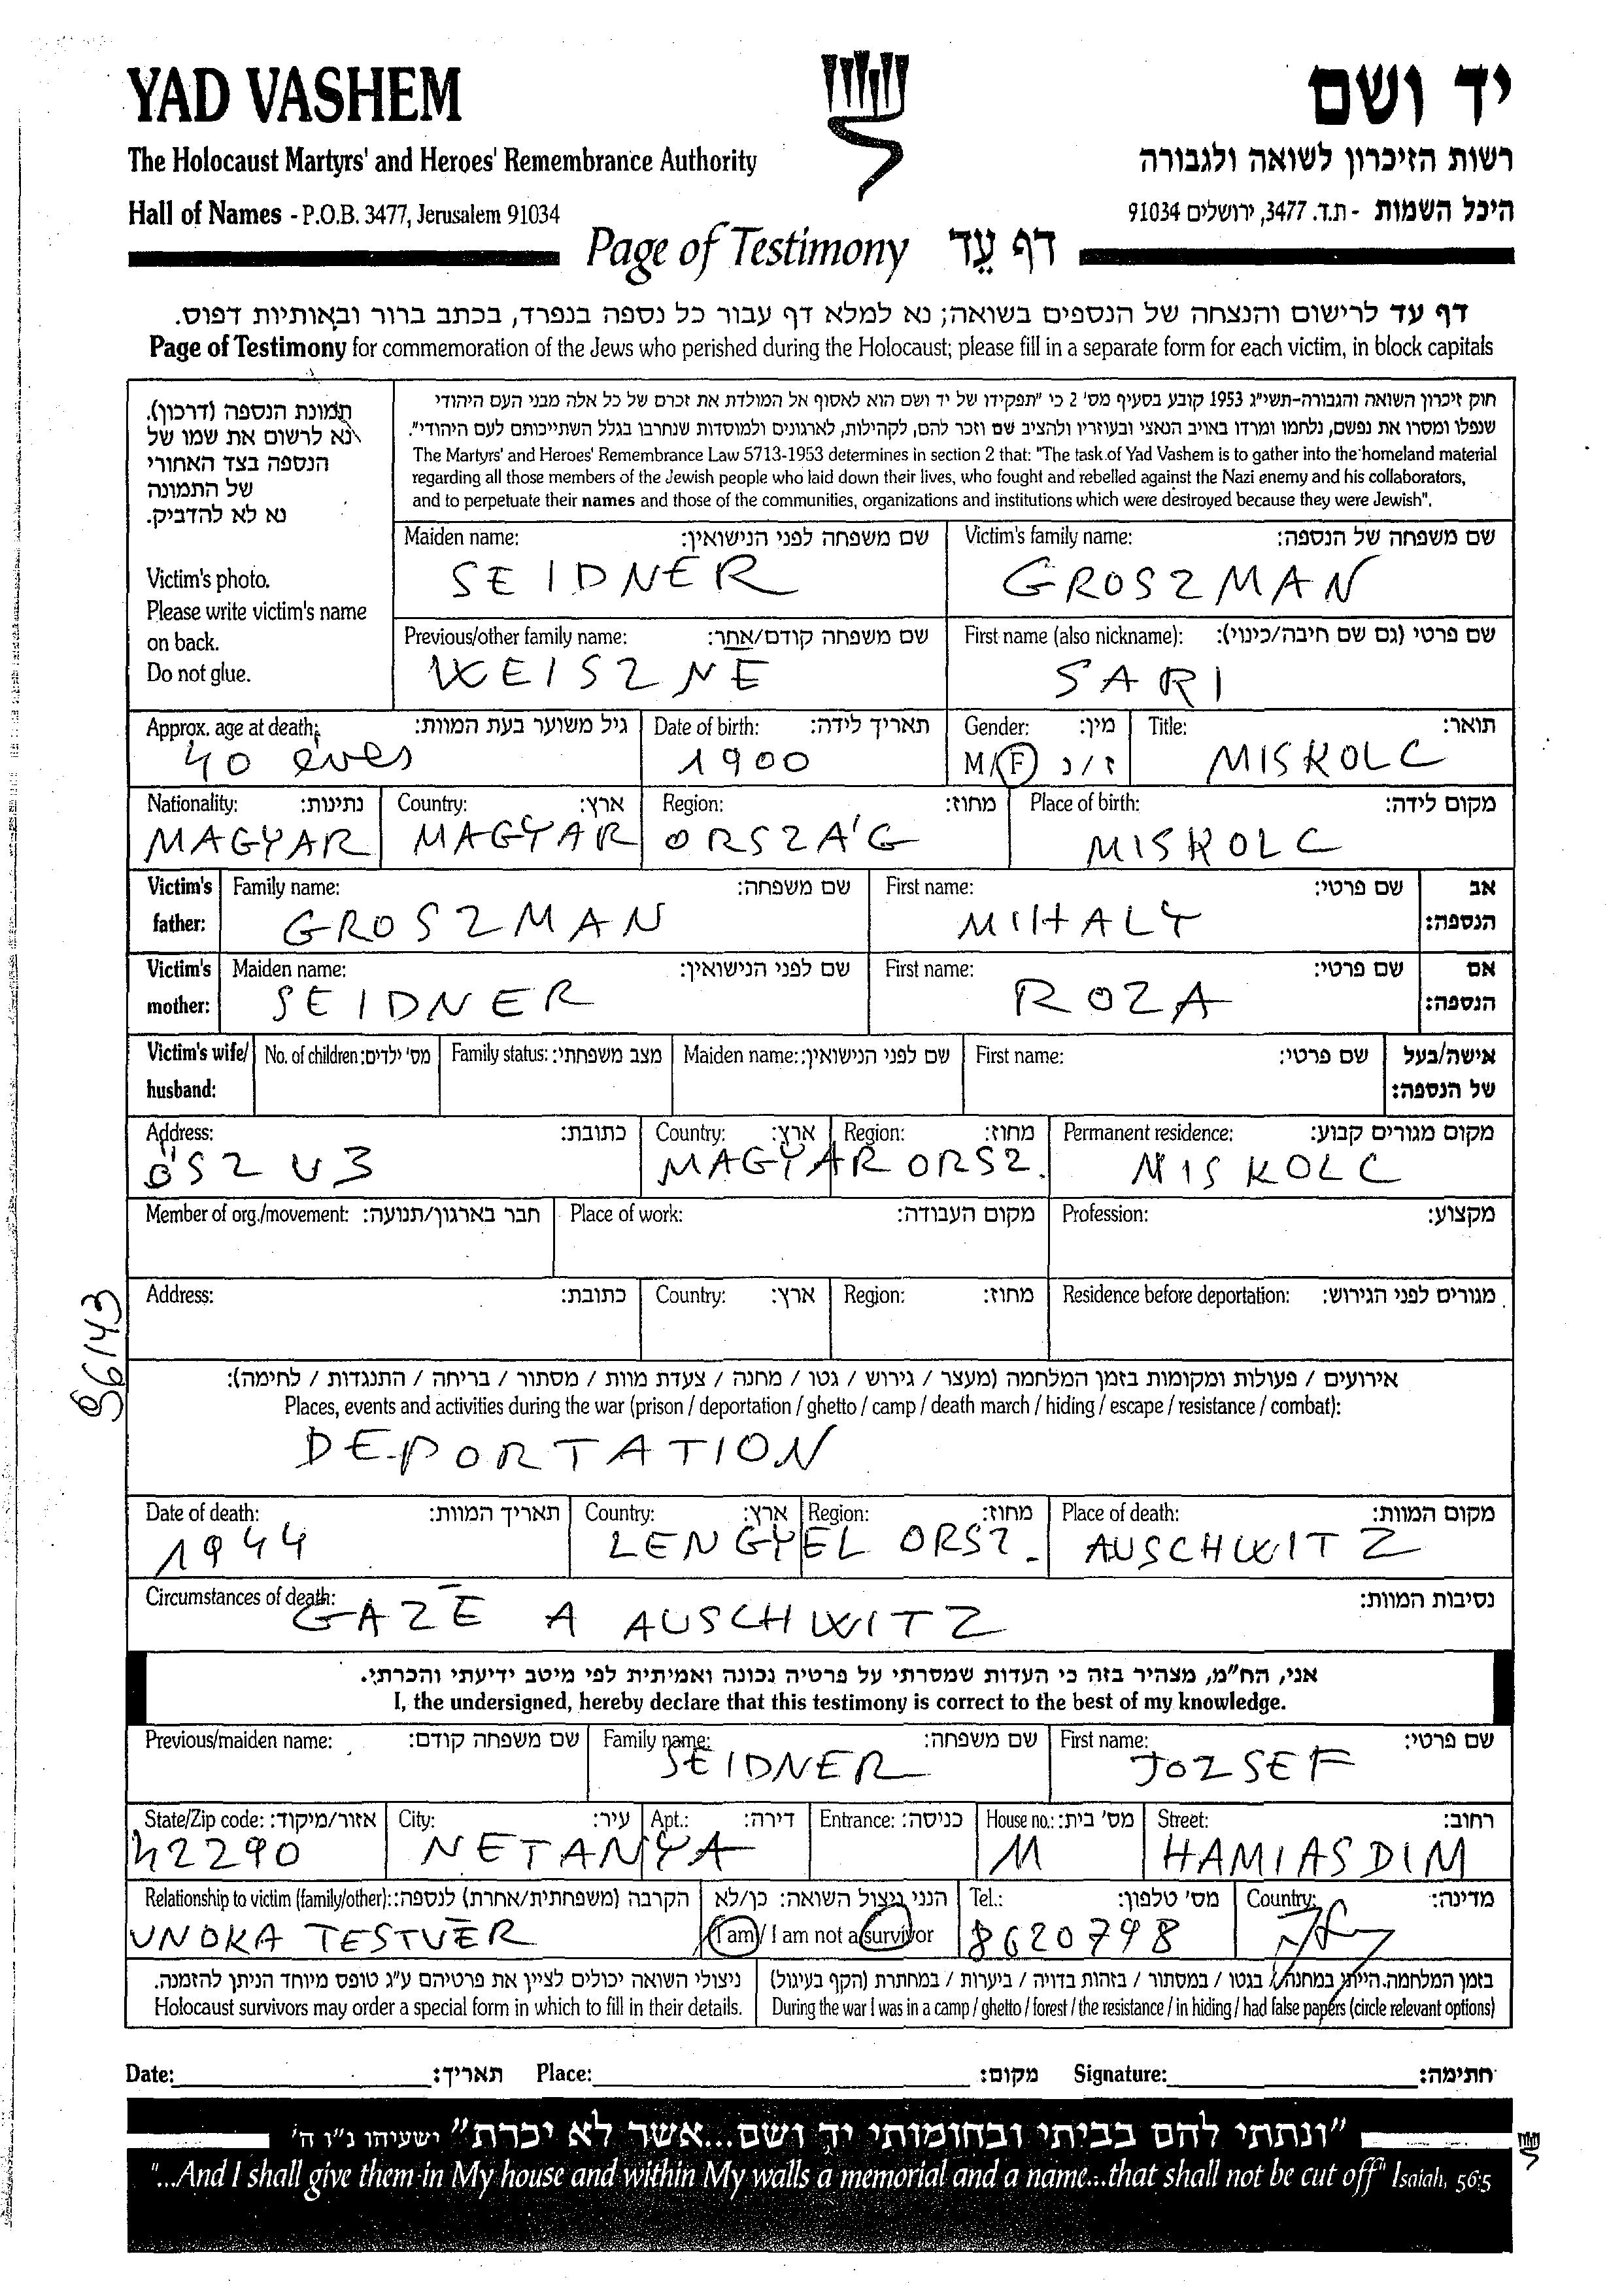 YAD VASHEM
יד ושם
The Holocaust Martyrs' and Heroes' Remembrance Authority
רשות הזיכרון לשואה ולגבורה
Hall of Names - P.O.B. 3477, Jerusalem 91034
היכל השמות - ת.ד. 3477, ירושלים 91034
Page of Testimony דף עֵד
דף עד לרישום והנצחה של הנספים בשואה; נא למלא דף עבור כל נספה בנפרד, בכתב ברור ובאותיות דפוס.
Page of Testimony for commemoration of the Jews who perished during the Holocaust; please fill in a separate form for each victim, in block capitals
תמונת הנספה (דרכון).
נא לרשום את שמו של
הנספה בצד האחורי
של התמונה
נא לא להדביק.
Victim's photo.
Please write victim's name
on back.
Do not glue.
חוק זיכרון השואה והגבורה-תשי"ג 1953 קובע בסעיף מס' 2 כי "תפקידו של יד ושם הוא לאסוף אל המולדת את זכרם של כל אלה מבני העם היהודי
שנפלו ומסרו את נפשם, נלחמו ומרדו באויב הנאצי ובעוזריו ולהציב שם וזכר להם, לקהילות, לארגונים ולמוסדות שנחרבו בגלל השתייכותם לעם היהודי".
The Martyrs' and Heroes' Remembrance Law 5713-1953 determines in section 2 that: "The task of Yad Vashem is to gather into the homeland material
regarding all those members of the Jewish people who laid down their lives, who fought and rebelled against the Nazi enemy and his collaborators,
and to perpetuate their names and those of the communities, organizations and institutions which were destroyed because they were Jewish".
Maiden name: שם משפחה לפני הנישואין: Victim's family name: שם משפחה של הנספה:
SEIDNER GROSZMAN
Previous/other family name: שם משפחה קודם/אחר: First name (also nickname): שם פרטי (גם שם חיבה/כינוי):
WEISZ NE SARI
Approx. age at death: גיל משוער בעת המוות: Date of birth: תאריך לידה: Gender: מין: Title: תואר:
40 éves 1900 M/F ז/נ MISKOLC
Nationality: נתינות: Country: ארץ: Region: מחוז: Place of birth: מקום לידה:
MAGYAR MAGYAR ORSZÁG MISKOLC
Victim's Family name: שם משפחה: First name: שם פרטי: אב
father: GROSZMAN MIHALY הנספה:
Victim's Maiden name: שם לפני הנישואין: First name: שם פרטי: אם
mother: SEIDNER ROZA הנספה:
Victim's wife/ No. of children: מס' ילדים: Family status: מצב משפחתי: Maiden name: שם לפני הנישואין: First name: שם פרטי: אישה/בעל
husband: של הנספה:
Address: כתובת: Country: ארץ: Region: מחוז: Permanent residence: מקום מגורים קבוע:
ŐSZ U 3 MAGYAR ORSZ. MISKOLC
Member of org./movement: חבר בארגון/תנועה: Place of work: מקום העבודה: Profession: מקצוע:
Address: כתובת: Country: ארץ: Region: מחוז: Residence before deportation: מגורים לפני הגירוש:
86143
אירועים / פעולות ומקומות בזמן המלחמה (מעצר / גירוש / גטו / מחנה / צעדת מוות / מסתור / בריחה / התנגדות / לחימה):
Places, events and activities during the war (prison / deportation / ghetto / camp / death march / hiding / escape / resistance / combat):
DEPORTATION
Date of death: תאריך המוות: Country: ארץ: Region: מחוז: Place of death: מקום המוות:
1944 LENGYEL ORSZ. AUSCHWITZ
Circumstances of death: נסיבות המוות:
GAZE A AUSCHWITZ
אני, הח"מ, מצהיר בזה כי העדות שמסרתי על פרטיה נכונה ואמיתית לפי מיטב ידיעתי והכרתי.
I, the undersigned, hereby declare that this testimony is correct to the best of my knowledge.
Previous/maiden name: שם משפחה קודם: Family name: שם משפחה: First name: שם פרטי:
SEIDNER JOZSEF
State/Zip code: אזור/מיקוד: City: עיר: Apt.: דירה: Entrance: כניסה: House no.: מס' בית: Street: רחוב:
42290 NETANYA 11 HAMIASDIM
Relationship to victim (family/other): הקרבה (משפחתית/אחרת) לנספה: הנני ניצול השואה: כן/לא Tel.: מס' טלפון: Country: מדינה:
UNOKA TESTVER I am / I am not a survivor 8620798
ניצולי השואה יכולים לציין את פרטיהם ע"ג טופס מיוחד הניתן להזמנה. בזמן המלחמה הייתי במחנה / בגטו / במסתור / בזהות בדויה / ביערות / במחתרת (הקף בעיגול)
Holocaust survivors may order a special form in which to fill in their details. During the war I was in a camp / ghetto / forest / the resistance / in hiding / had false papers (circle relevant options)
Date: תאריך: Place: מקום: Signature: חתימה:
"ונתתי להם בביתי ובחומותי יד ושם...אשר לא יכרת" ישעיהו נ"ו ה'
"...And I shall give them in My house and within My walls a memorial and a name...that shall not be cut off" Isaiah, 56:5